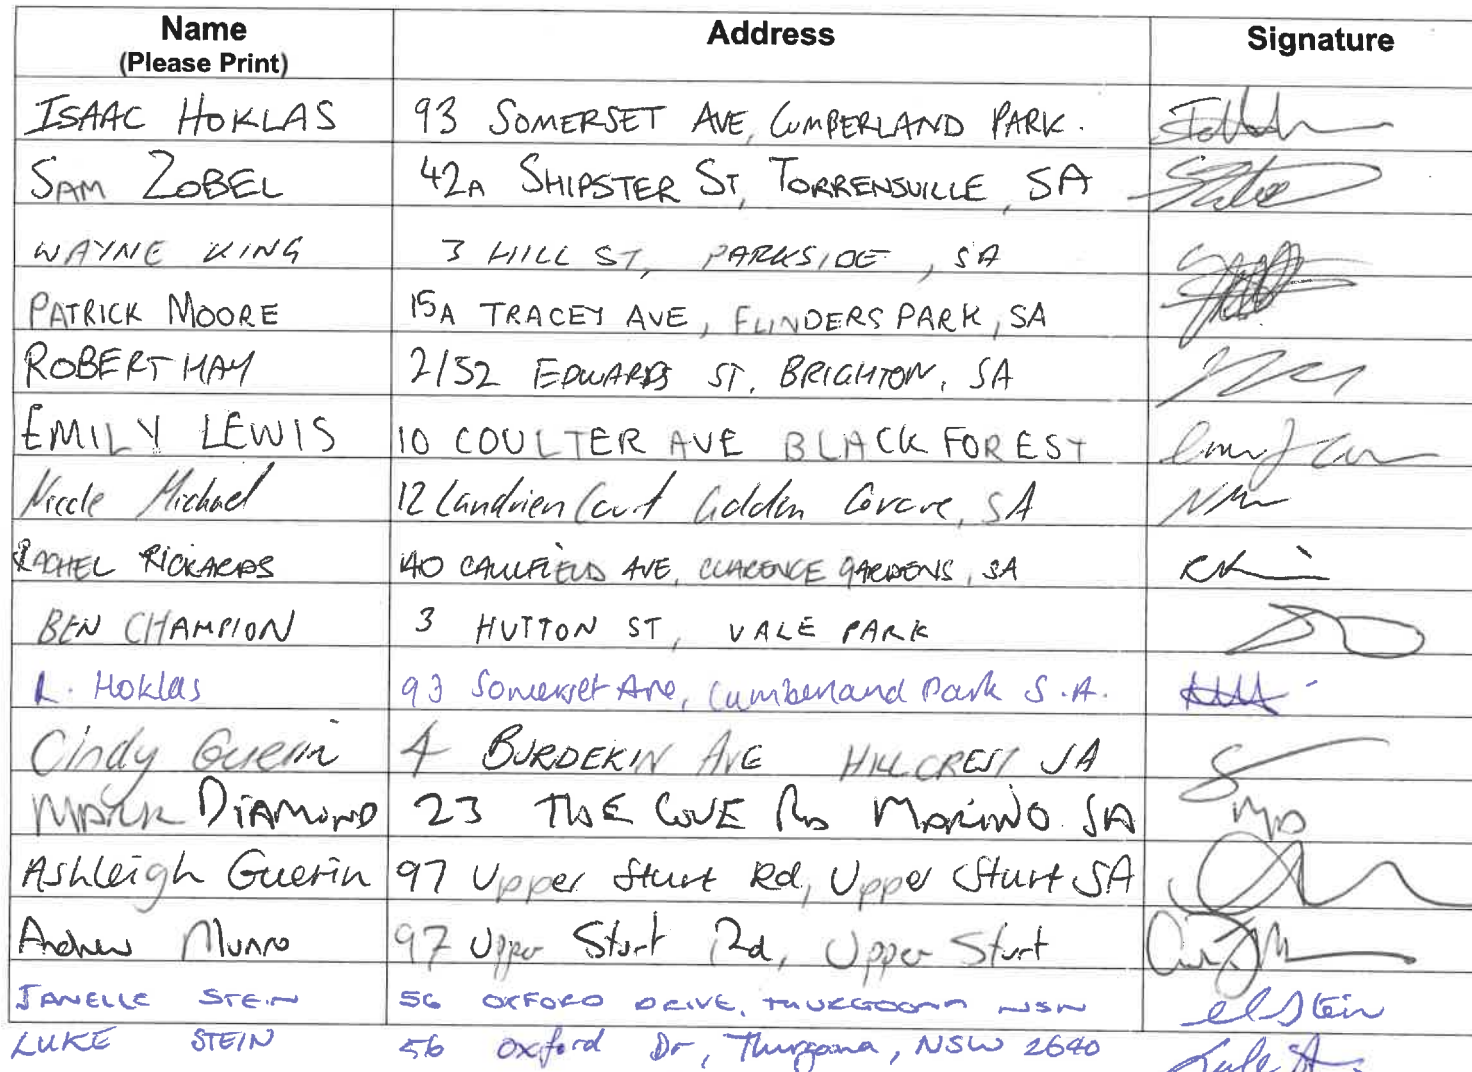 Name Address Signature
(Please Print)
ISAAC HOKLAS 93 SOMERSET AVE, CUMBERLAND PARK.
SAM ZOBEL 42A SHIPSTER ST, TORRENSVILLE, SA
WAYNE KING 3 HILL ST, PARKSIDE, SA
PATRICK MOORE 15A TRACEY AVE, FLINDERS PARK, SA
ROBERT HAY 2/52 EDWARDS ST, BRIGHTON, SA
EMILY LEWIS 10 COULTER AVE BLACK FOREST
Nicole Michael 12 Landrien Court Golden Grove, SA
RACHEL RICKARDS 40 CAULFIELD AVE, CLARENCE GARDENS, SA
BEN CHAMPION 3 HUTTON ST, VALE PARK
R. Hoklas 93 Somerset Ave, Cumberland Park S.A.
Cindy Guerin 4 BURDEKIN AVE HILLCREST SA
MARK DIAMOND 23 THE COVE RD MARINO SA MD
Ashleigh Guerin 97 Upper Sturt Rd, Upper Sturt SA
Andrew Munro 97 Upper Sturt Rd, Upper Sturt
JANELLE STEIN 56 OXFORD DRIVE, THURGOONA NSW
LUKE STEIN 56 Oxford Dr, Thurgoona, NSW 2640